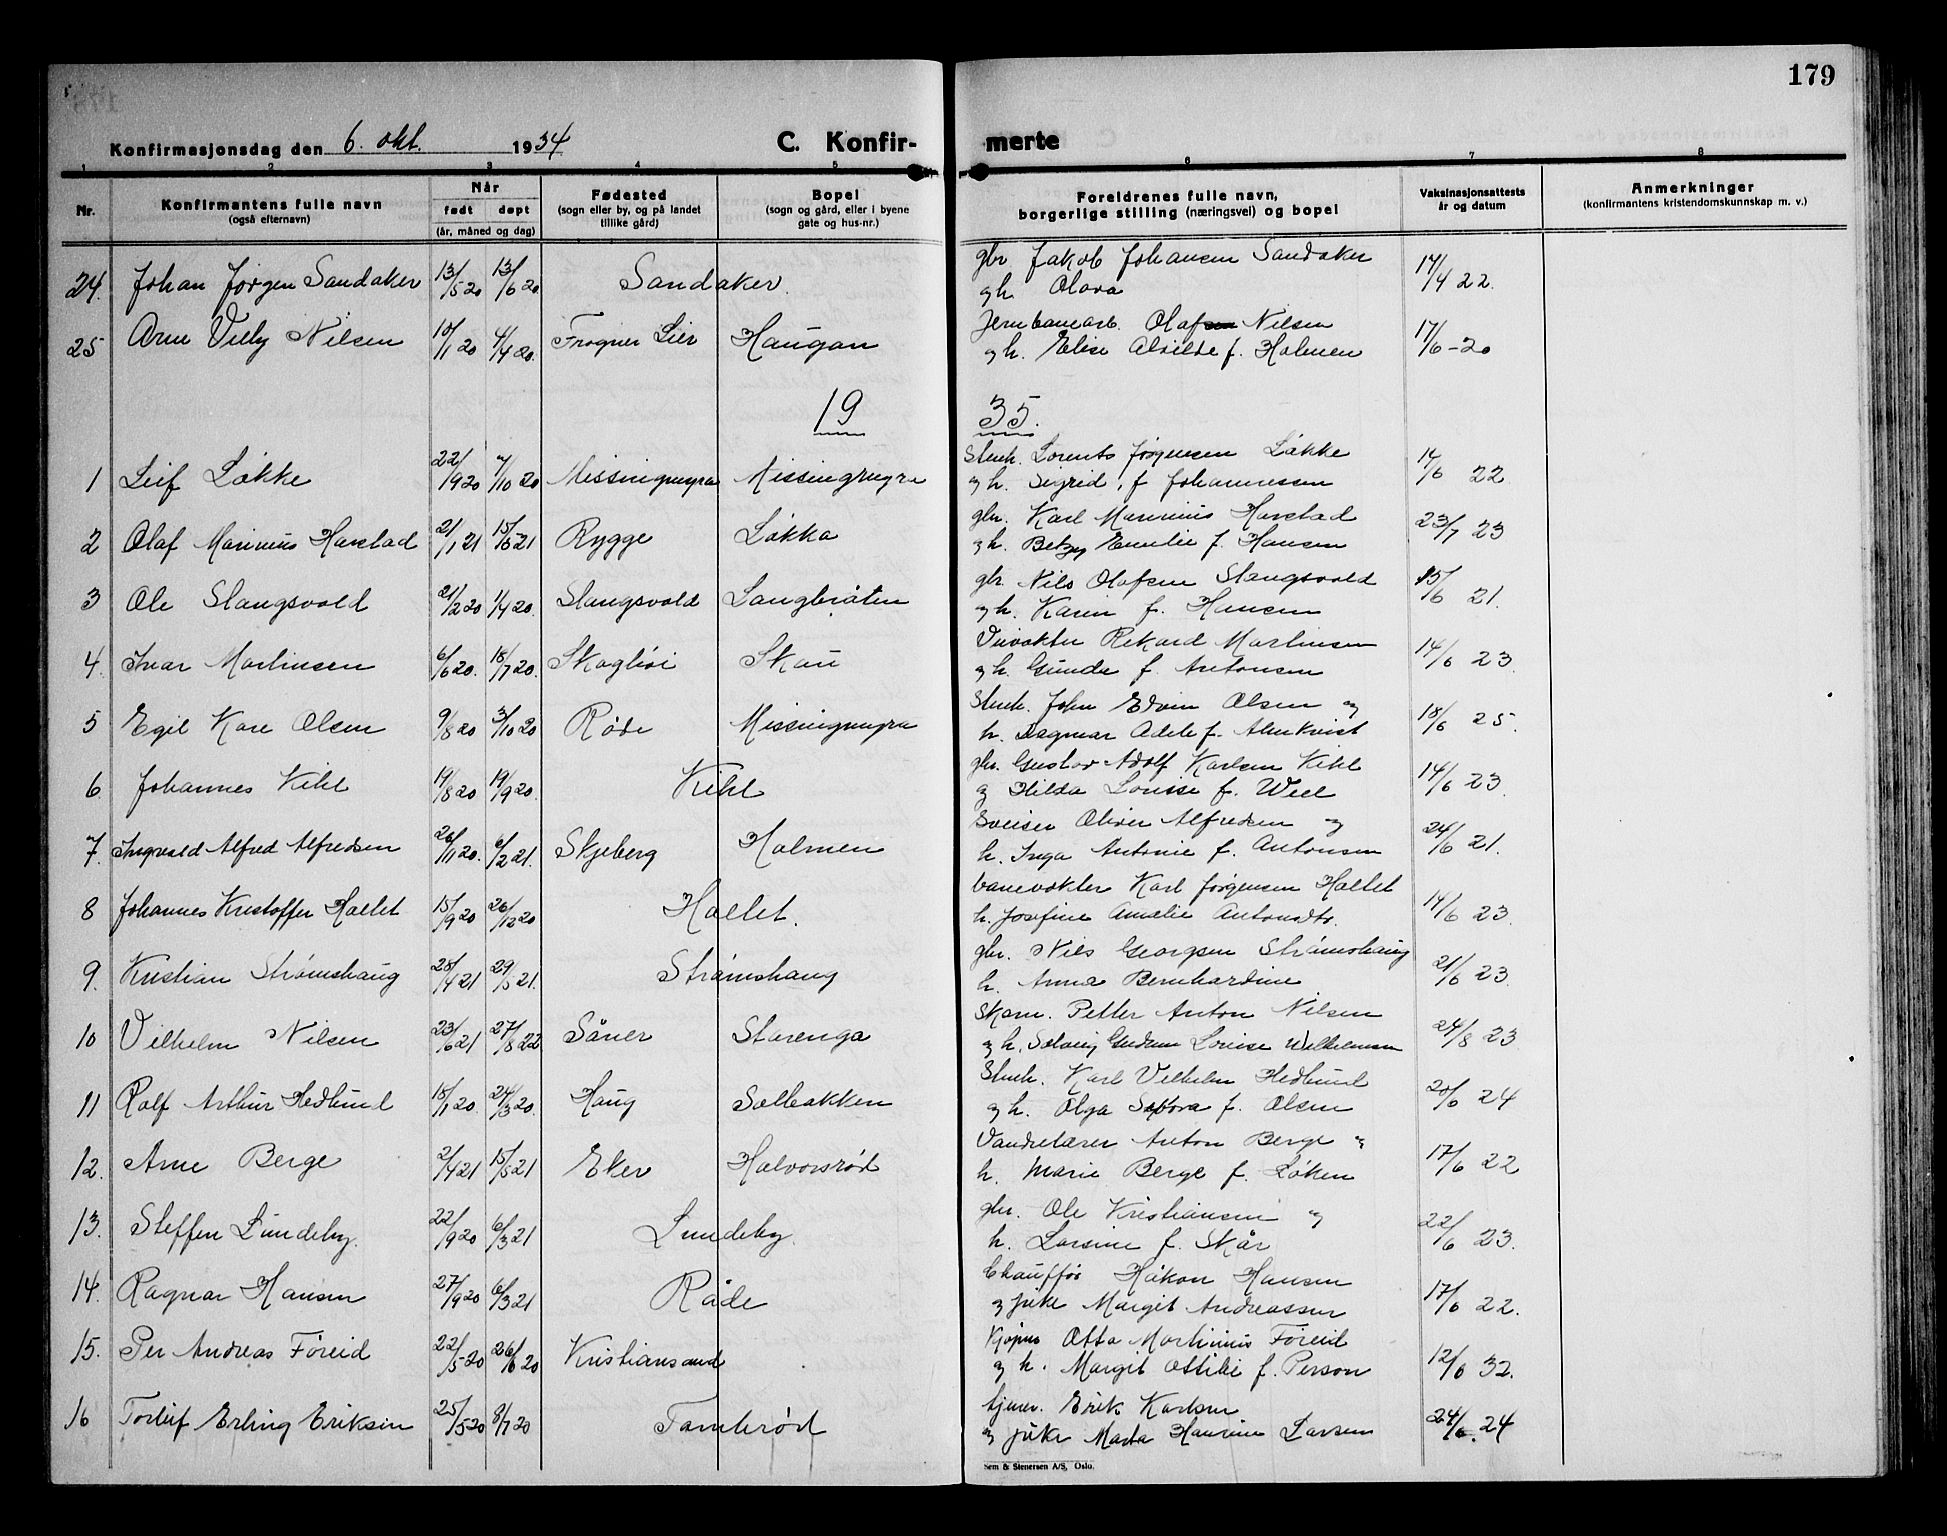 179
Konfirmasjonsdag den 6. okt. 1934 C. Konfir- merte
1 2 3 4 5 6 7 8
Nr. Konfirmantens fulle navn (også efternavn) Når født døpt (år, måned og dag) Fødested (sogn eller by, og på landet tillike gård) Bopel (sogn og gård, eller i byene gate og hus-nr.) Foreldrenes fulle navn, borgerlige stilling (næringsvei) og bopel Vaksinasjonsattests år og datum Anmerkninger (konfirmantens kristendomskunnskap m. v.)
24. Johan Jørgen Sandaker 13/5 20 13/6 20 Sandaker. gbr Jakob Johansen Sandaker
og h. Olava 17/4 22.
25 Arne Villy Nilsen 10/1 20 4/4 20. Frogner Lier Haugan Jernbanearb. Olaf Nilsen
og h. Elise Alvilde f. Holmen 17/6 - 20
19 35.
1 Leif Løkke 22/9 20 7/10 20 Missingmyra Missingmyra Stenh. Lorents Jørgensen Løkke
og h. Sigrid, f Johannessen 14/6 22
2 Olaf Marinius Harestad 21/1 21 15/5 21 Rygge Løkka gbr. Karl Marinius Harestad
og h. Betzy Emilie f. Hansen 23/7 23
3 Ole Slangsvold 21/2 20 1/4 20. Slangsvold Langbråten gbr. Nils Olafsen Slangsvold
og h. Karin f. Hansen 15/6 21.
4. Ivar Martinsen 6/6 20. 18/7 20. Skogli Skau Rikard Martinsen
og h. Gunda f. Antonsen 14/6 23.
5 Egil Kåre Olsen 9/8 20 3/10 20 Røde Missingmyra Stenh. John Edvin Olsen og
h. Dagmar Adele f. Almkvist 18/6 25.
6. Johannes Kihl 14/8 20 19/9 20. Kihl gbr. Gustav Adolf Karlsen Kihl
og Hilda Lovise f. Wiel 14/6 23.
7. Ingvald Alfred Alfredsen 26/11 20. 6/2 21. Skjeberg Holmen Sveiser Oliver Alfredsen og
h. Inga Antonie f. Antonsen 24/6 21.
8 Johannes Kristoffer Hollet 15/9 20 26/12 20 Hollet. banevokter Karl Jørgensen Hollet
h. Josefine Amalie Antonsdtr. 14/6 23.
9. Kristian Strømshaug 28/4 21 29/5 21. Strømshaug gbr. Nils Georgsen Strømshaug
h. Anna Bernhardine 21/6 23.
10 Vilhelm Nilsen 23/6 21 27/8 22 Såner Starenga Skom. Petter Anton Nilsen
og h. Solveig Gudrun Lovise Wilhelmsen 24/8 23
11 Rolf Arthur Hedlund 18/1 20. 24/3 20. Haug Solbakken Stenh. Karl Vilhelm Hedlund
og h. Olga f. Olsen 20/6 24
12. Arne Berge 2/4 21 15/5 21 Eker Halvorsrød Vandrelærer Anton Berge og
h. Marie Berge f. Løken 17/6 22
13. Steffen Lundeby. 22/9 20 6/3 21 Lundeby. gbr. Ole Kristiansen og
h. Larsine f. Skår 22/6 23.
14. Ragnar Hansen 27/9 20 6/3 21 Råde Chauffør Håkon Hansen
og pike Margit Andreassen 17/6 22.
15. Per Andreas Föreid 22/5 20 26/6 20 Kristiansand Kjøpm Otto Martinius Föreid
og h. Margit Ottilie f. Person 12/6 32.
16 Torleif Erling Eriksen 25/5 20 8/7 20 Tomberød tjener. Erik Karlsen
og pike Marta Larsen 24/6. 24
Sem & Stenersen A/S, Oslo.